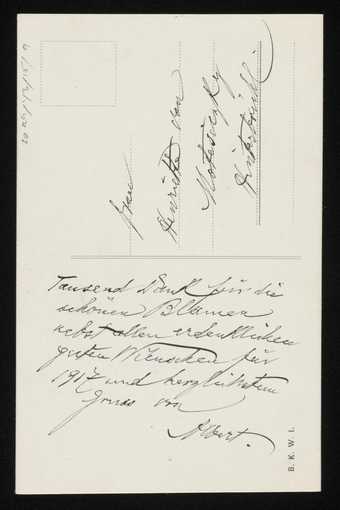 Frau
Henriette von
Motesiczky
Hinterbrühl
Tausend Dank für die
schönen Blumen
nebst allen erdenklichen
guten Wünschen für
1917 und herzlichstem
Gruss von
Albert.
B. K. W. I.